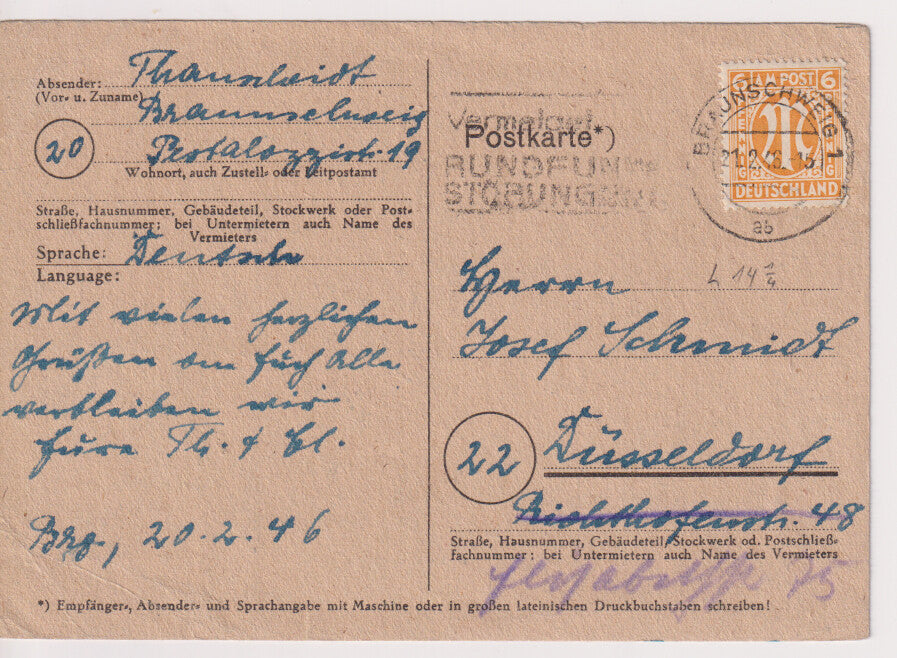 Absender: Thamscheidt
(Vor- u. Zuname)
Braunschweig
20
Pestalozzistr. 19
Wohnort, auch Zustell- oder Leitpostamt
Straße, Hausnummer, Gebäudeteil, Stockwerk oder Post-
schließfachnummer; bei Untermietern auch Name des
Vermieters
Sprache: Deutsch
Language:
Mit vielen herzlichen
Grüßen an Euch Alle
verbleiben wir
Eure Th. & El.
Bsg., 20.2.46
Vermeidet
RUNDFUNK
STÖRUNGEN
Postkarte*)
6 A.M. POST 6
DEUTSCHLAND
BRAUNSCHWEIG 1
21.2.46.-15
ab
L 14 1/4
Herrn
Josef Schmidt
22
Düsseldorf
Richthofenstr. 48
Straße, Hausnummer, Gebäudeteil, Stockwerk od. Postschließ-
fachnummer; bei Untermietern auch Name des Vermieters
Elisabethstr 75
*) Empfänger-, Absender- und Sprachangabe mit Maschine oder in großen lateinischen Druckbuchstaben schreiben!